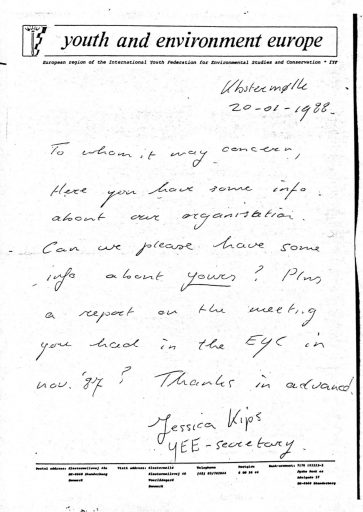 youth and environment europe
European region of the International Youth Federation for Environmental Studies and Conservation * IYF
Klostermølle
20-01-1988.
To whom it may concern,
Here you have some info.
about our organisation.
Can we please have some
info about yours? Plus
a report on the meeting
you had in the EYC in
nov. '87? Thanks in advance.
Jessica Kips
YEE-secretary.
Postal address: Klostermollevej 48a Visit address: Klostermolle Telephone Postgiro Bank-account:
DK-8660 Skanderborg Klostermollevej 48 Jyske Bank as
Denmark Voerladegard Adelgade
Denmark DK-8660 Skanderborg